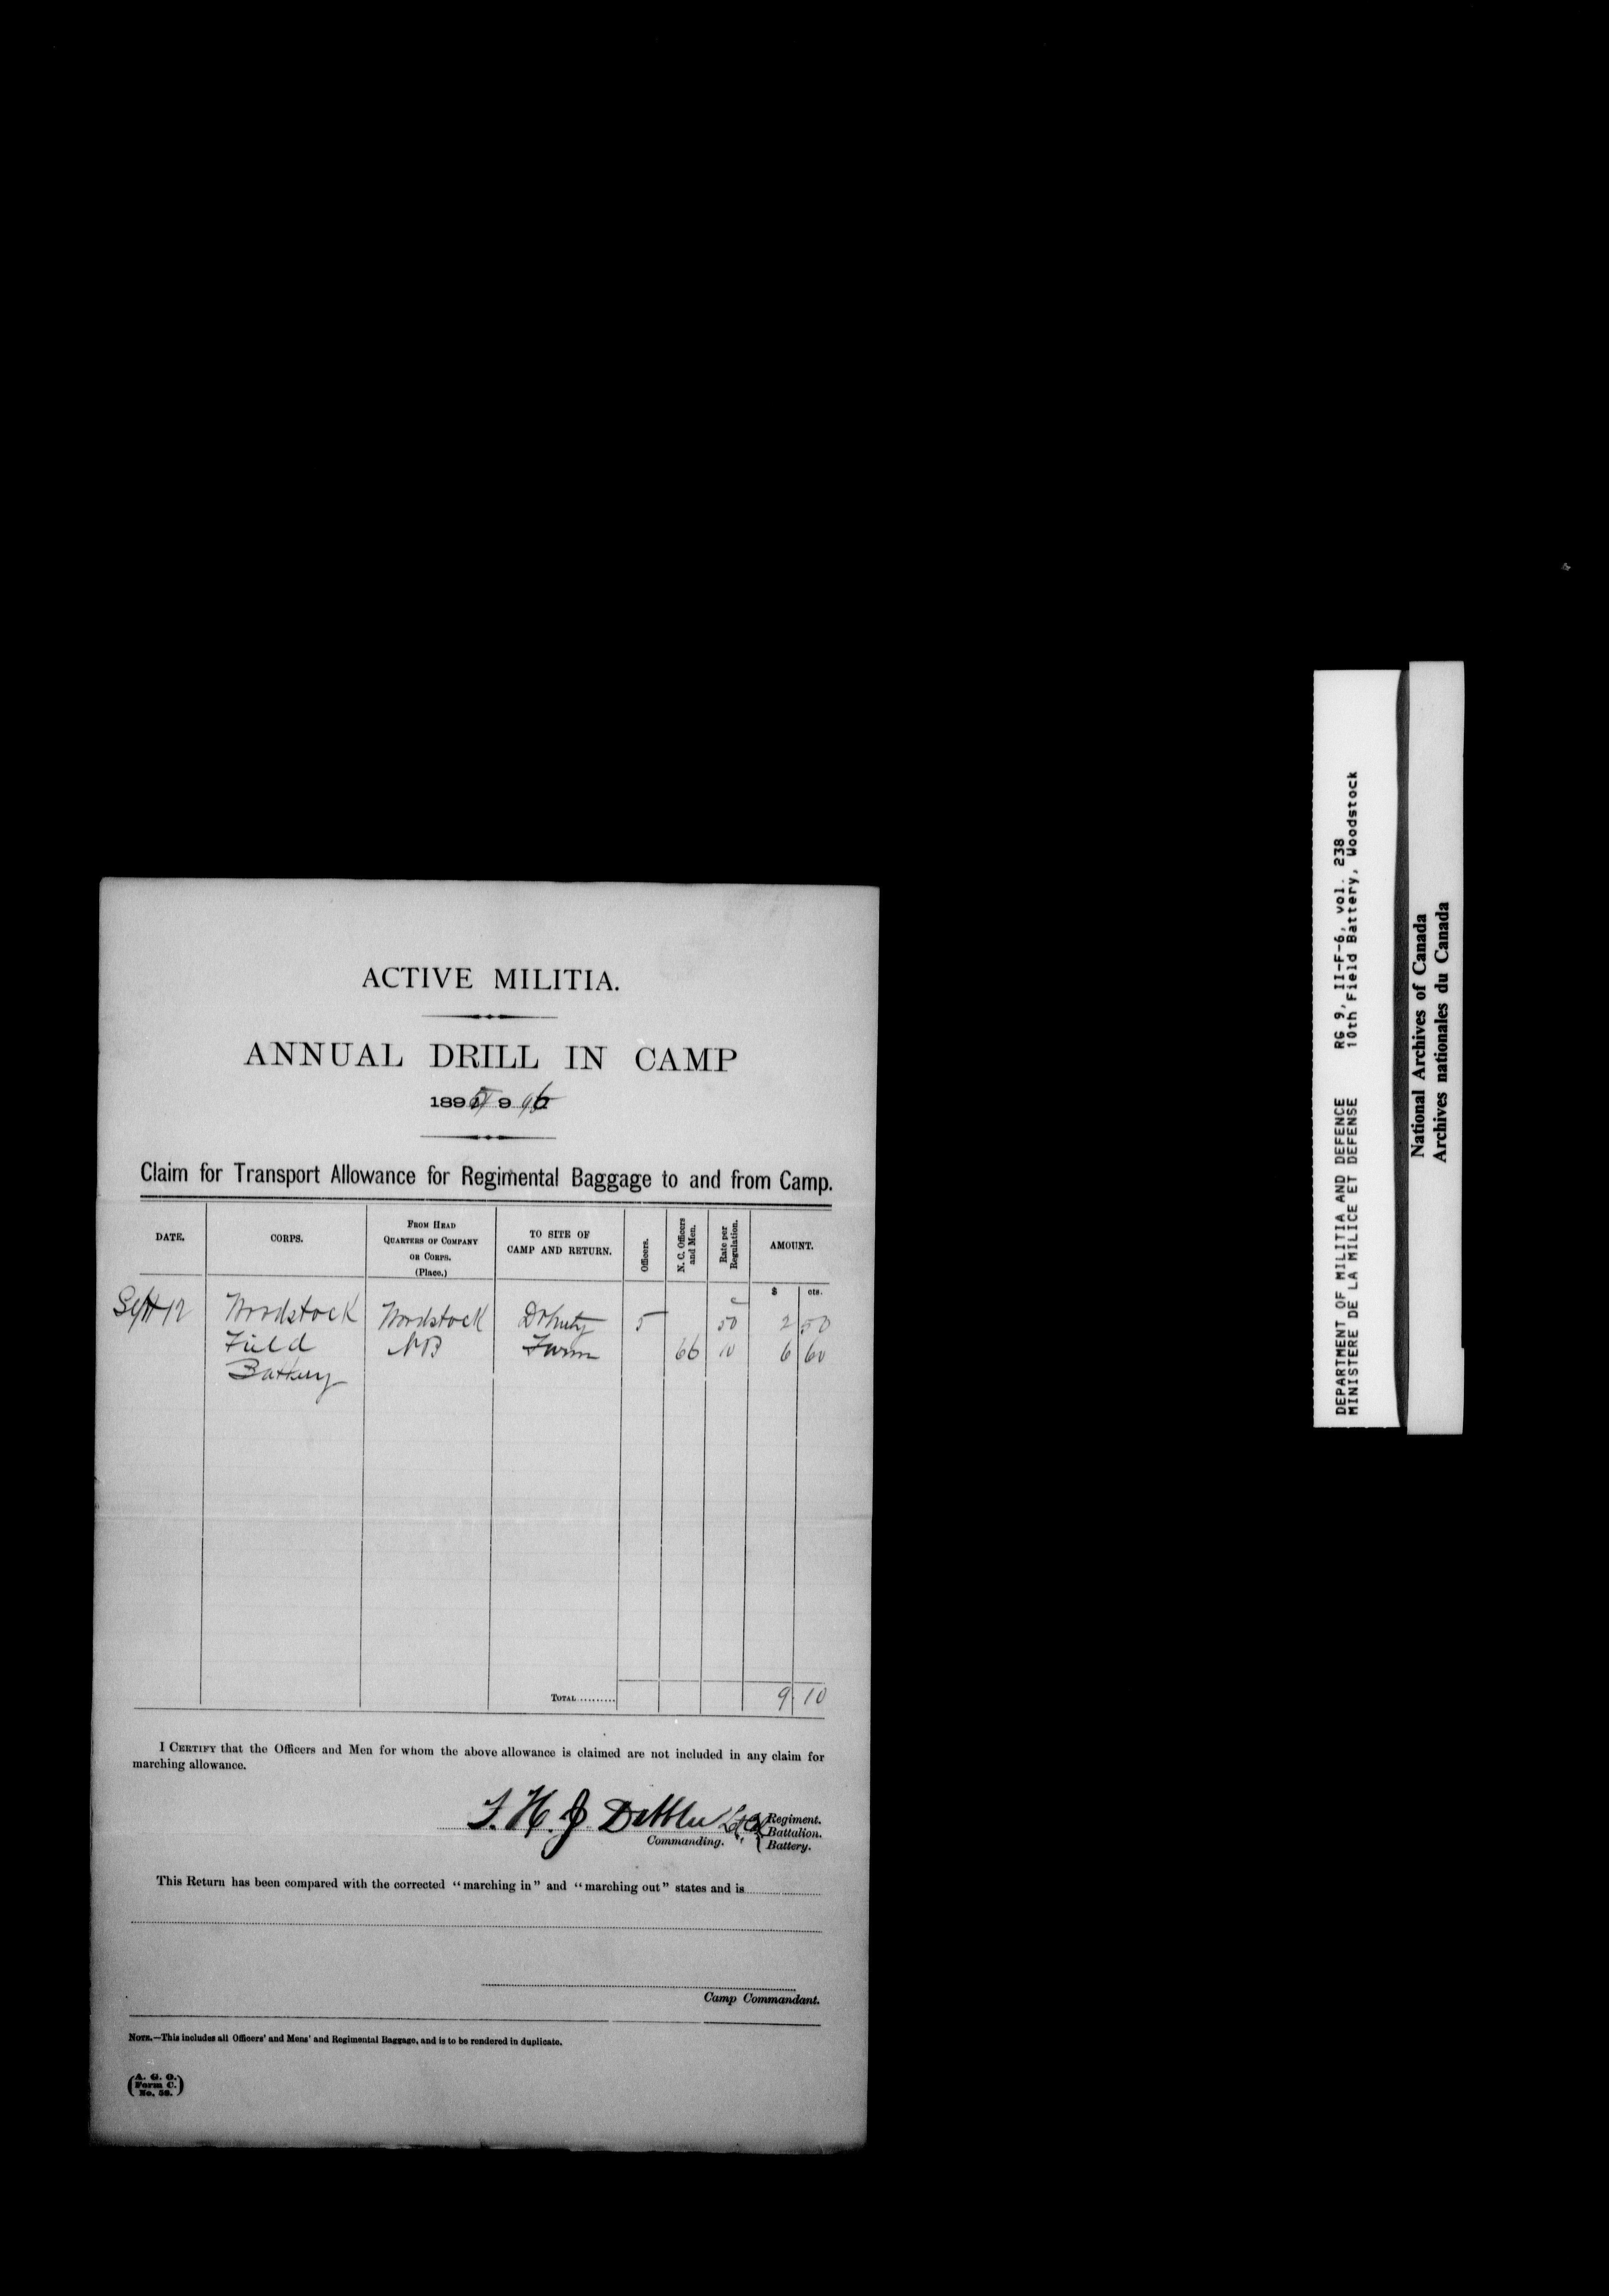 ACTIVE MILITIA.
ANNUAL DRILL IN CAMP
1895 9 96
Claim for Transport Allowance for Regimental Baggage to and from Camp.
DATE. CORPS. FROM HEAD QUARTERS OF COMPANY OR CORPS. (Place.) TO SITE OF CAMP AND RETURN. Officers. N. C. Officers and Men. Rate per Regulation. AMOUNT.
$ cts.
Sept 12 Woodstock Woodstock 5 50 2 50
Field NB Farm 66 10 6 60
Battery
TOTAL.......... 9 10
I CERTIFY that the Officers and Men for whom the above allowance is claimed are not included in any claim for
marching allowance.
F. H. J. Dibblee Lt Col
Regiment.
Battalion.
Battery.
Commanding.
This Return has been compared with the corrected “marching in” and “marching out” states and is
Camp Commandant.
NOTE.—This includes all Officers' and Mens' and Regimental Baggage, and is to be rendered in duplicate.
(A. G. O.
Form C.
No. 58.)
DEPARTMENT OF MILITIA AND DEFENCE RG 9, II-F-6, vol. 238
MINISTERE DE LA MILICE ET DEFENSE 10th Field Battery, Woodstock
National Archives of Canada
Archives nationales du Canada